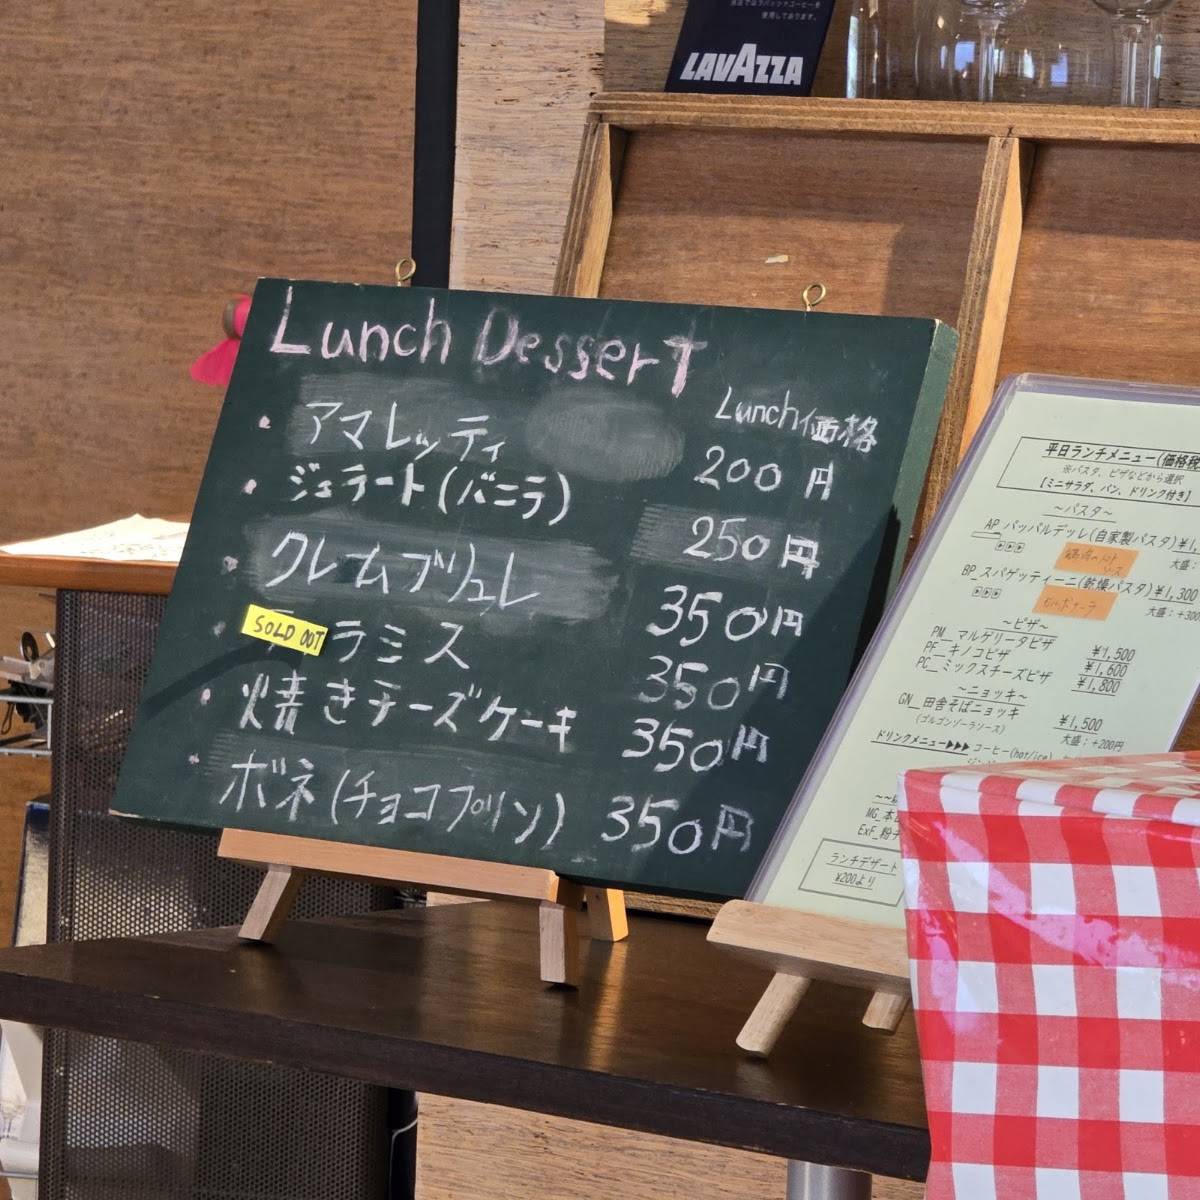 使用しております。
LAVAZZA
Lunch Dessert
Lunch価格
・アマレッティ 200円
・ジェラート(バニラ) 250円
・クレームブリュレ 350円
SOLD OUT
ラミス 350円
・焼きチーズケーキ 350円
・ボネ(チョコプリン) 350円
平日ランチメニュー(価格税
※パスタ、ピザなどから選択
【ミニサラダ、パン、ドリンク付き】
~パスタ~
AP パッパルデッレ(自家製パスタ)¥1,
大盛:
BP_スパゲッティーニ(乾燥パスタ)¥1,300
大盛:+300
~ピザ~
PM__マルゲリータピザ ¥1,500
PF__キノコピザ ¥1,600
PC__ミックスチーズピザ ¥1,800
~ニョッキ~
GN__田舎そばニョッキ ¥1,500
(ゴルゴンゾーラソース) 大盛:+200円
ドリンクメニュー▶▶▶ コーヒー(hot/ice)
MG_本日
ExF_粉チ
ランチデザート
¥200より